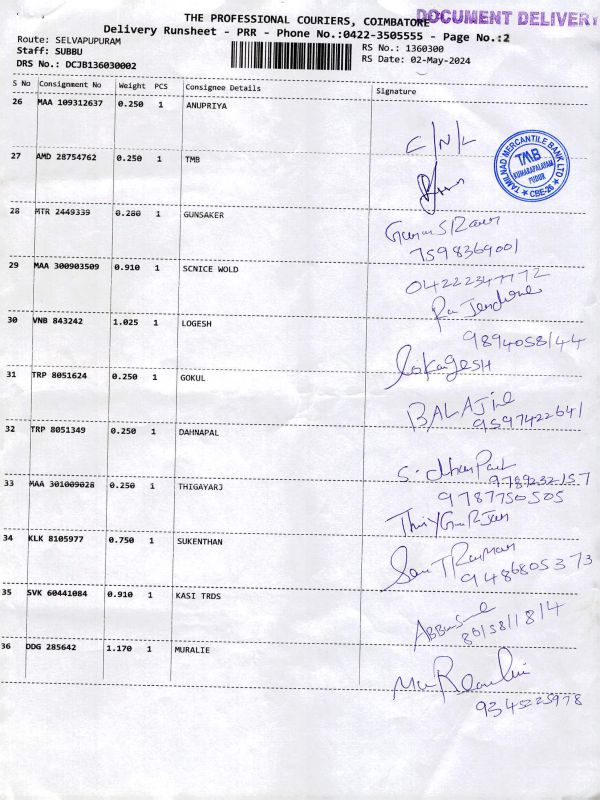 THE PROFESSIONAL COURIERS, COIMBATORE
DOCUMENT DELIVERY
Delivery Runsheet - PRR - Phone No.:0422-3505555 - Page No.:2
Route: SELVAPUPURAM
RS No.: 1360300
Staff: SUBBU
RS Date: 02-May-2024
DRS No.: DCJB136030002
S No Consignment No Weight PCS Consignee Details Signature
26 MAA 109312637 0.250 1 ANUPRIYA
C/N/L
27 AMD 28754762 0.250 1 TMB
TAMILNAD MERCANTILE BANK LTD
TMB
KUMARAPALAYAM
PUDUR
CBE-26
28 MTR 2449339 0.280 1 GUNSAKER
7598369001
29 MAA 300903509 0.910 1 SCNICE WOLD
04222347772
30 VNB 843242 1.025 1 LOGESH
9894058144
LoKagESH
31 TRP 8051624 0.250 1 GOKUL
BALAJI
9597422641
32 TRP 8051349 0.250 1 DAHNAPAL
S. dhanPal
9789232157
33 MAA 301009028 0.250 1 THIGAYARJ
9787750505
34 KLK 8105977 0.750 1 SUKENTHAN
9486805373
35 SVK 60441084 0.910 1 KASI TRDS
8015811814
36 DDG 285642 1.170 1 MURALIE
9345225978